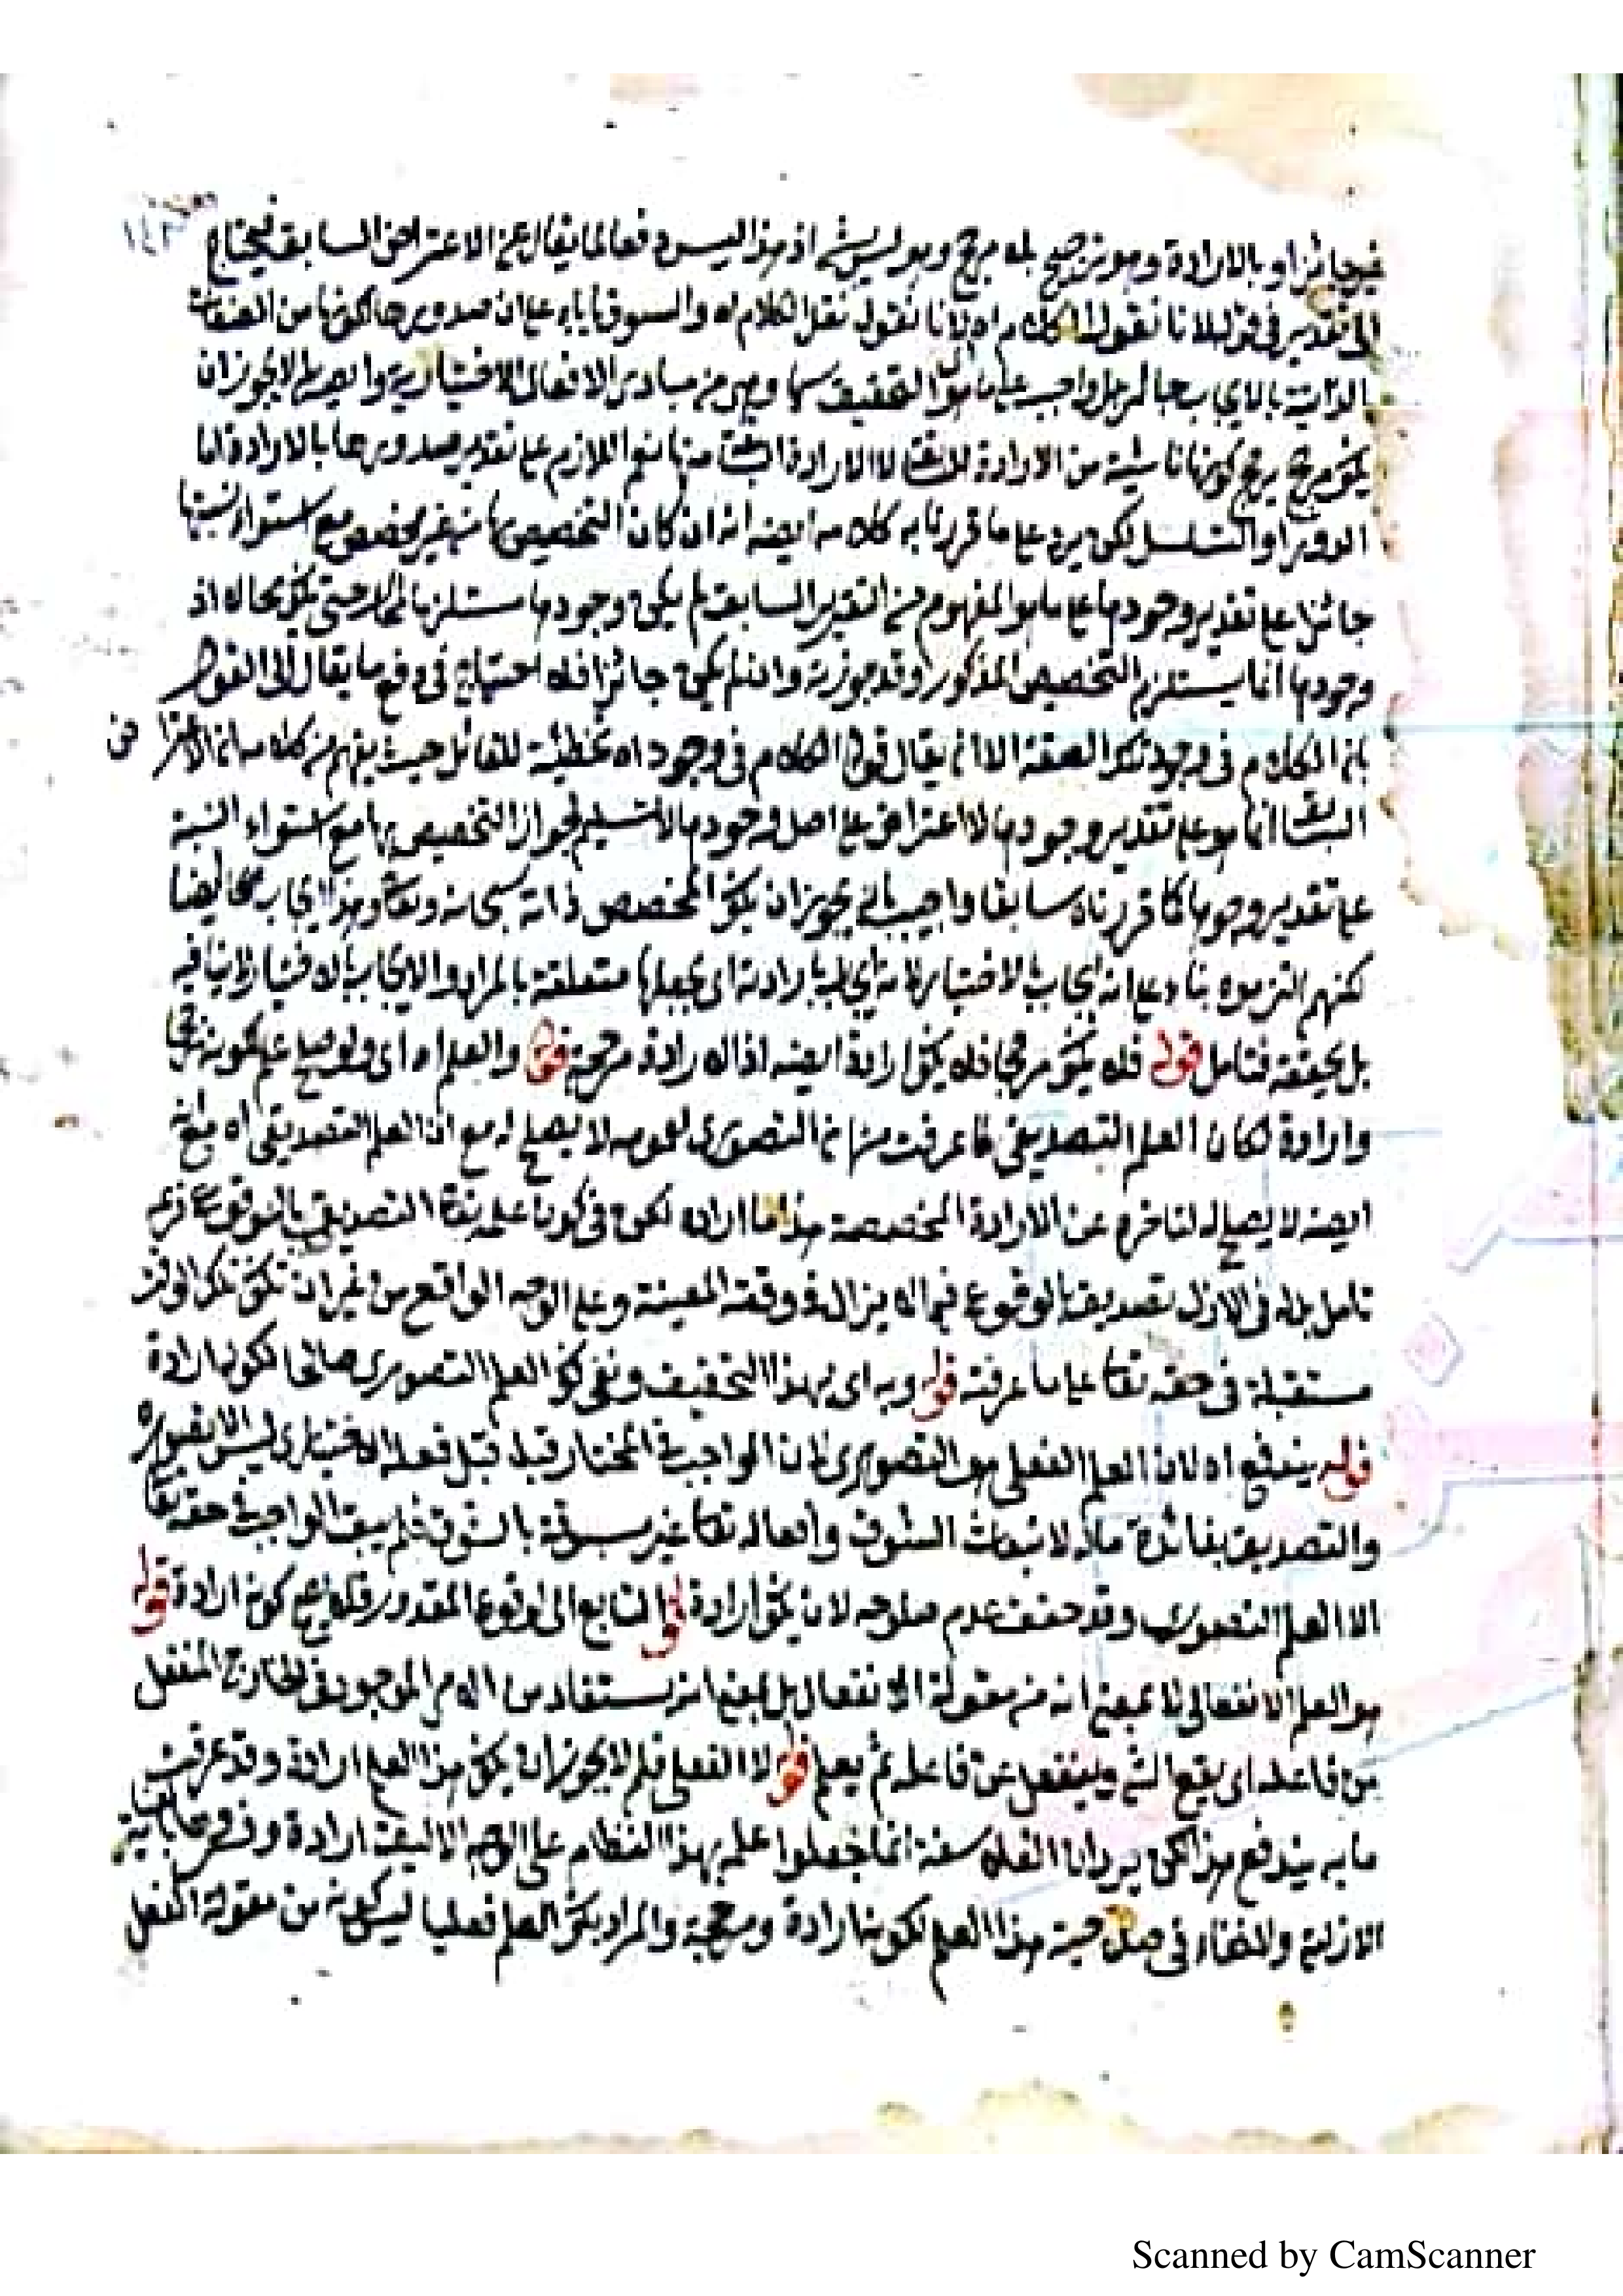 غير جائز او بالارادة وهو ترجيح بله مرجح وهو ليس بشئ اذ هذا ليس دفعا لما يقال عن الاعتراض السابق فيحتاج
الى تقدير في قوله لانا نقول الكلام اه لانا نقول نقل الكلام اه والسوق ياباه على ان صدورها لكونها من الصفات
الذاتية بالايجاب جائز بل واجب على ما هو التحقيق سيما وهي من مبادى الافعال الاختيارية وايضه لا يجوز ان
يكون مرجح يرجح كونها ناشئة من الارادة للنقل الارادة منها نعم اللازم على تقدير صدورها بالارادة اما
الدور او التسلسل لكن يرد على ما قررنا به كلامه ايضه انه ان كان التخصيص بها من غير مخصص مع استواء نسبتها
جائزا على تقدير وجودها على ما هو المفهوم من التقدير السابق لم يكن وجودها مستلزما لمحال حتى يكون محالا اذ
وجودها انما يستلزم التخصيص المذكور وقد جوزته وان لم يكن جائزا فله احتياج في دفع ما يقال الى القول
بان الكلام في وجود تلك الصفة الا ان يقال قوله الكلام في وجود اه تخطئة للقائل حيث يفهم من كلامه ان الاعتراض
السابق انما هو على تقدير وجودها لا اعتراض على اصل وجودها لا تسليم لجواز التخصيص بها مع استواء النسبة
على تقدير وجودها كما قررناه سابقا واجيب بانه يجوز ان يكون المخصص ذاته سبحانه وتعا وهذا ايجاب محا ايضا
لكنهم التزموه بناء على انه ايجاب بالاختيار لانه ايجاب بارادته اى بجعلها متعلقة بالمراد والايجاب بالاختيار لا ينافيه
بل يحققه فتامل قوله فله يكون مرجحا فله يكون ارادة ايضه اذ الارادة مرجحة قوله والعلم اه اى ولو صلح علم لكونه مرجحا
وارادة لكان العلم التصديقى لما عرفت منها ان التصورى لعمومه لا يصلح له مع ان العلم التصديقى اه مع انه
ايضه لا يصلح له لتاخره عن الارادة المخصصة هذا ما اراده لكن في كون علمه تعا التصديقى بالوقوع فرعه
تامل بل له في الازل تصديق بالوقوع فيما لا يزال في وقته المعينة وعلى الوجه الواقع من غير ان تكون تلك الاوقات
مستقبلة في حقه تعا على ما عرفته قوله وبه اى بهذا التحقيق ونفى كون العلم التصورى صالحا لكونه ارادة
قوله يندفع اه لان العلم الفعلى هو التصورى لان الواجب في المختار قبل فعله الاختيارى ليس الا تصوره
والتصديق بفائدة ما له لانبعاث الشوق وافعاله تعا غير مسبوقة بالشوق فلم يبق الواجب في حقه تعا
الا العلم التصورى وقد حققت عدم صلوحه لان يكون ارادة قوله التابع اى لوقوع المقدور فله يصح كونه ارادة قوله
هو العلم الانفعالى لا بمعنى انه من مقولة الانفعال بل بمعنى انه يستفاد من الامر الموجود في الخارج المنفعل
من فاعله اى يقع الشئ وينفعل عن فاعله ثم يعلم قوله لا الفعلى فلم لا يجوز ان يكون هذا العلم ارادة وقد عرفت
ما به يندفع هذا لكن يرد ان الفلاسفة انما جعلوا علمه بهذا النظام على الوجه الاليق ارادة
الازلية ولا خفاء في صلوحية هذا العلم لكونه ارادة ومرجحة والمراد بكون العلم فعليا ليس كونه من مقولة الفعل
Scanned by CamScanner